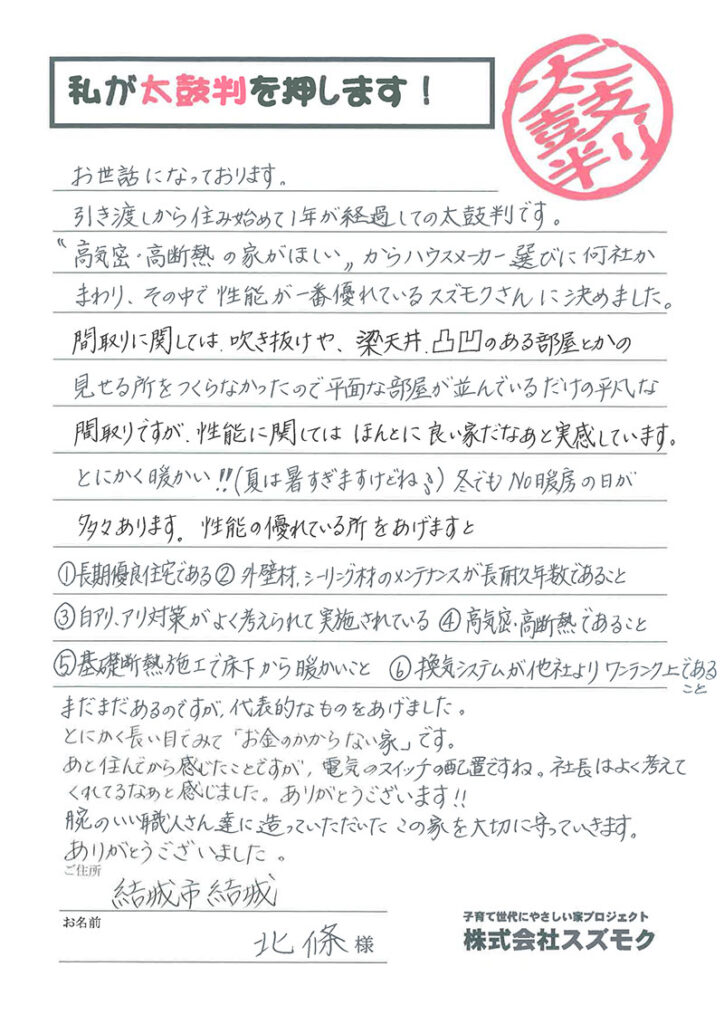 私が太鼓判を押します！
太鼓判
お世話になっております。
引き渡しから住み始めて1年が経過しての太鼓判です。
〝高気密・高断熱の家がほしい〟からハウスメーカー選びに何社か
まわり、その中で性能が一番優れているスズモクさんに決めました。
間取りに関しては、吹き抜けや、梁天井、凸凹のある部屋とかの
見せる所をつくらなかったので平面な部屋が並んでいるだけの平凡な
間取りですが、性能に関してはほんとに良い家だなあと実感しています。
とにかく暖かい!!(夏は暑すぎますけどね♪)冬でもNO暖房の日が
多々あります。性能の優れている所をあげますと
①長期優良住宅である②外壁材、シーリング材のメンテナンスが長耐久年数であること
③白アリ、アリ対策がよく考えられて実施されている ④高気密・高断熱であること
⑤基礎断熱施工で床下から暖かいこと ⑥換気システムが他社よりワンランク上であること
まだまだあるのですが、代表的なものをあげました。
とにかく長い目でみて「お金のかからない家」です。
あと住んでから感じたことですが、電気のスイッチの配置ですね。社長はよく考えて
くれてるなあと感じました。ありがとうございます!!
腕のいい職人さん達に造っていただいたこの家を大切に守っていきます。
ありがとうございました。
ご住所
結城市結城
お名前
北條様
子育て世代にやさしい家プロジェクト
株式会社スズモク